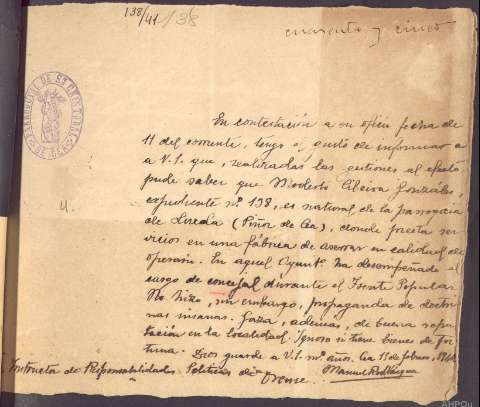 138/41 138
cuarenta y cinco
En contestación a su oficio fecha de
11 del corriente, tengo el gusto de informar a
a V.S. que, realizadas las gestiones al efecto
pude saber que Modesto González,
expediente nº 138, es natural de la parroquia
de (Piñor de Cea), donde presta ser-
vicios en una fábrica de aserrar en calidad de
operario. En aquel Ayunt.º ha desempeñado el
cargo de concejal durante el Frente Popular.
No hizo, sin embargo, propaganda de doctri-
nas insanas. Goza, además, de buena repu-
tación en la localidad. Ignoro si tiene bienes de for-
tuna. Dios guarde a V.S. mº años. Cea 15 de febrero,
Manuel Rodríguez
Instructor de Responsabilidades Políticas de Orense.
AHPOu